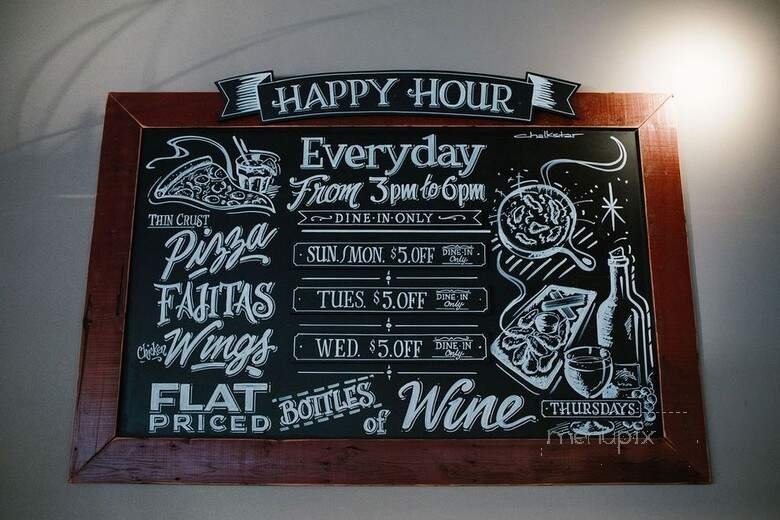 HAPPY HOUR
chalkstar
Everyday
From 3pm to 6pm
DINE-IN-ONLY
THIN CRUST
Pizza
FAJITAS
Chicken Wings
SUN./MON. $5.OFF DINE-IN Only
TUES. $5.OFF DINE-IN Only
WED. $5.OFF DINE-IN Only
FLAT PRICED BOTTLES of Wine
THURSDAYS
menupix